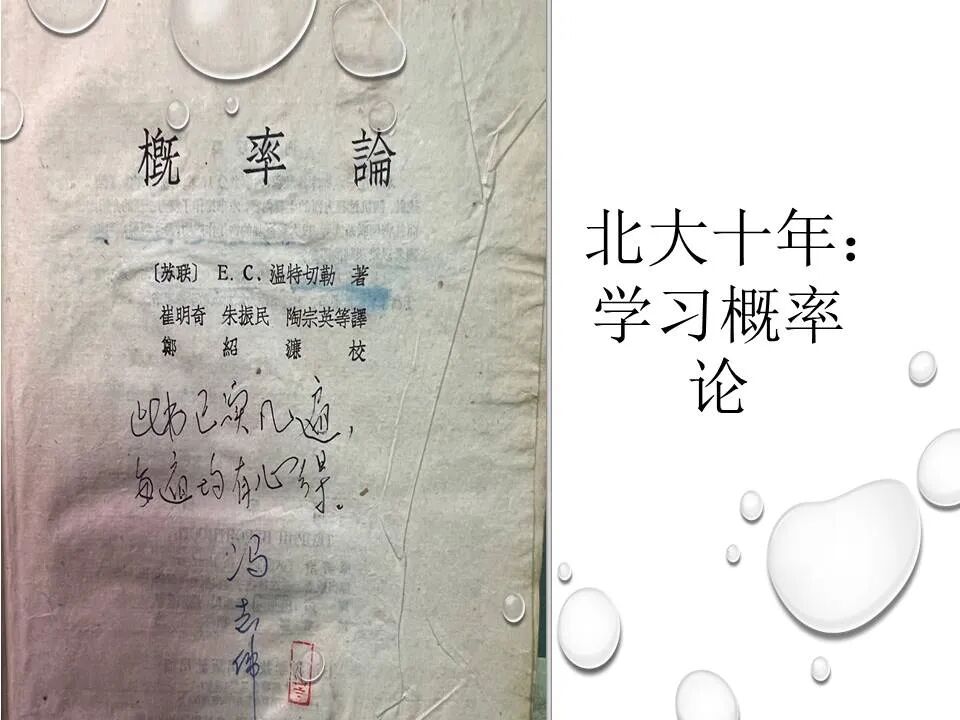 概率論
〔苏联〕 E. C. 温特切勒 著
崔明奇 朱振民 陶宗英等譯
鄭紹濂 校
此书已买几遍，
每遍均有心得。
冯志伟
北大十年：
学习概率
论